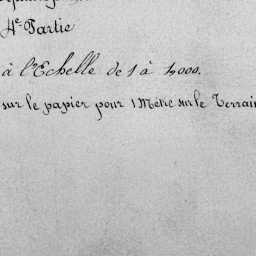 4e Partie
à l'Echelle de 1 à 4000.
sur le papier pour 1 Mètre sur le Terrain